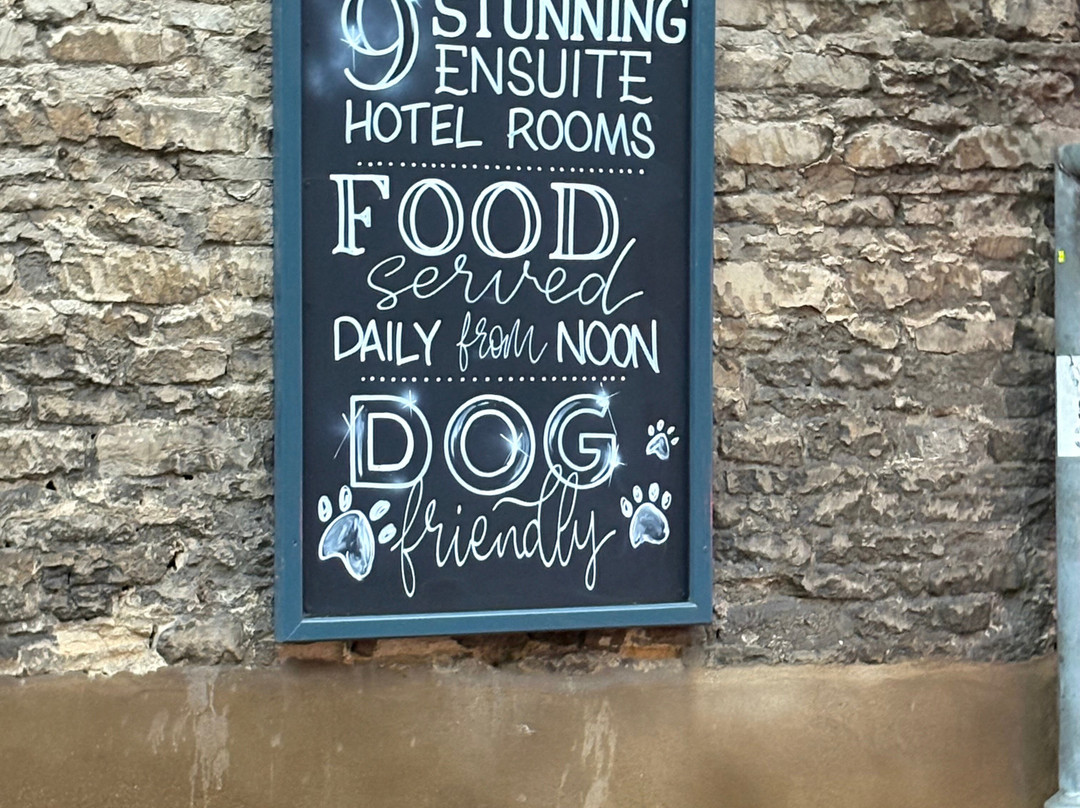 9 STUNNING
ENSUITE
HOTEL ROOMS
FOOD
served
DAILY from NOON
DOG
friendly